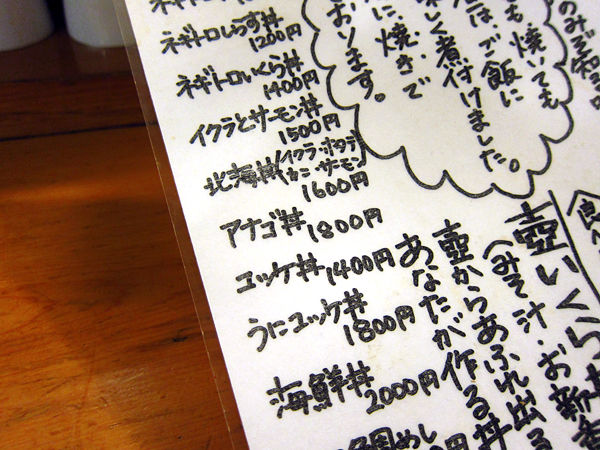 ネギトロしらす丼
1200円
ネギトロいくら丼
1400円
イクラとサーモン丼
1500円
北海丼(イクラ・ホタテ
カニ・サーモン)
1600円
アナゴ丼 1800円
ユッケ丼 1400円
うにユッケ丼
1800円
海鮮丼
2000円
も焼いても
はご飯に
煮付けました。
に焼きで
おります。
壺いくら
(みそ汁・お新香
壺からあふれ出る
あなたが作る丼